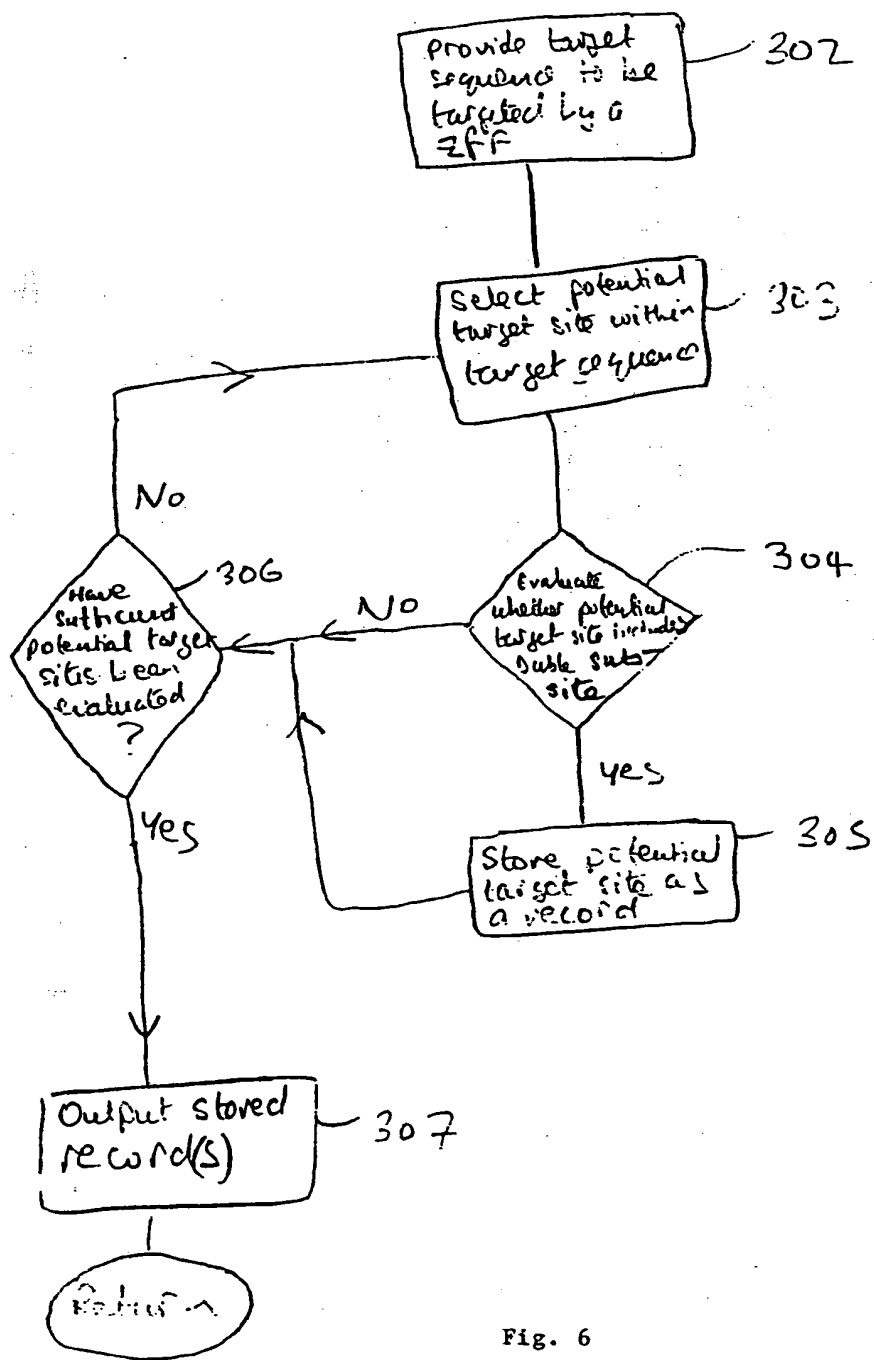 Provide target
sequence to be
targeted by a
ZFP
302
Select potential
target site within
target sequence
303
No
Have
sufficient
potential target
sites been
evaluated
?
306
No
Evaluate
whether potential
target site includes
site
304
Yes
yes
Store potential
target site as
a record
305
Output stored
record(s)
307
Return
Fig. 6